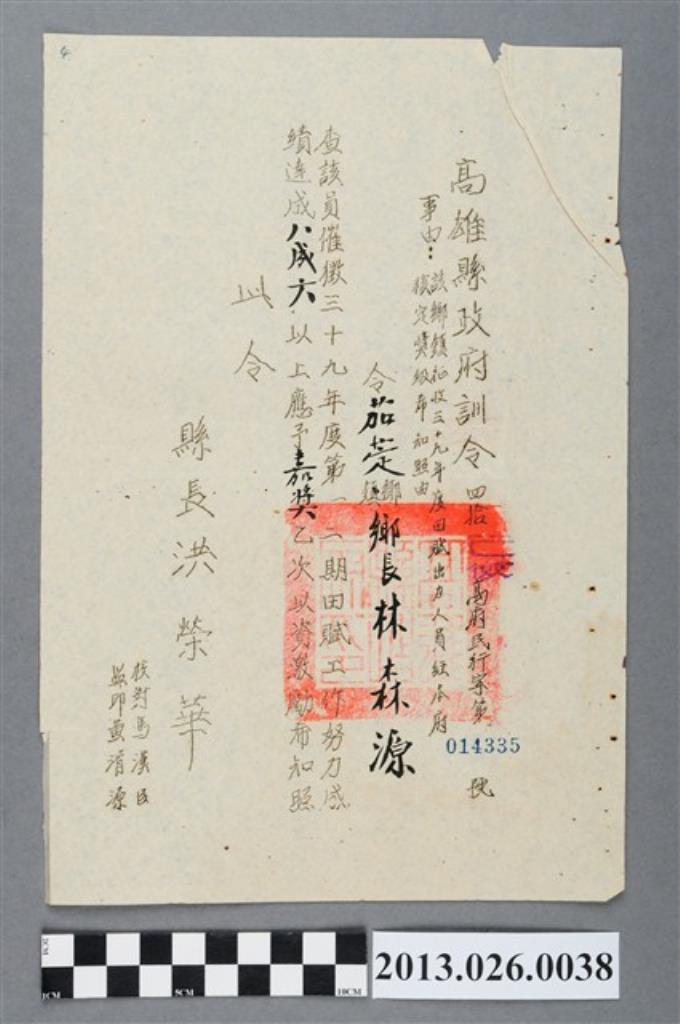 高雄縣政府訓令 四拾 高府民行字第 014335 號
事由：該鄉鎮征收三十九年度田賦出力人員經本府
核定獎級希知照由
令茄萣鄉鎮鄉長林森源
查該員催徵三十九年度第一二期田賦工作努力成
績達成八成六以上應予嘉獎乙次以資激勵希知照
此令
縣長洪榮華
校對馬漢臣
監印黃清源
2013.026.0038
2CM
1CM
5CM
10CM